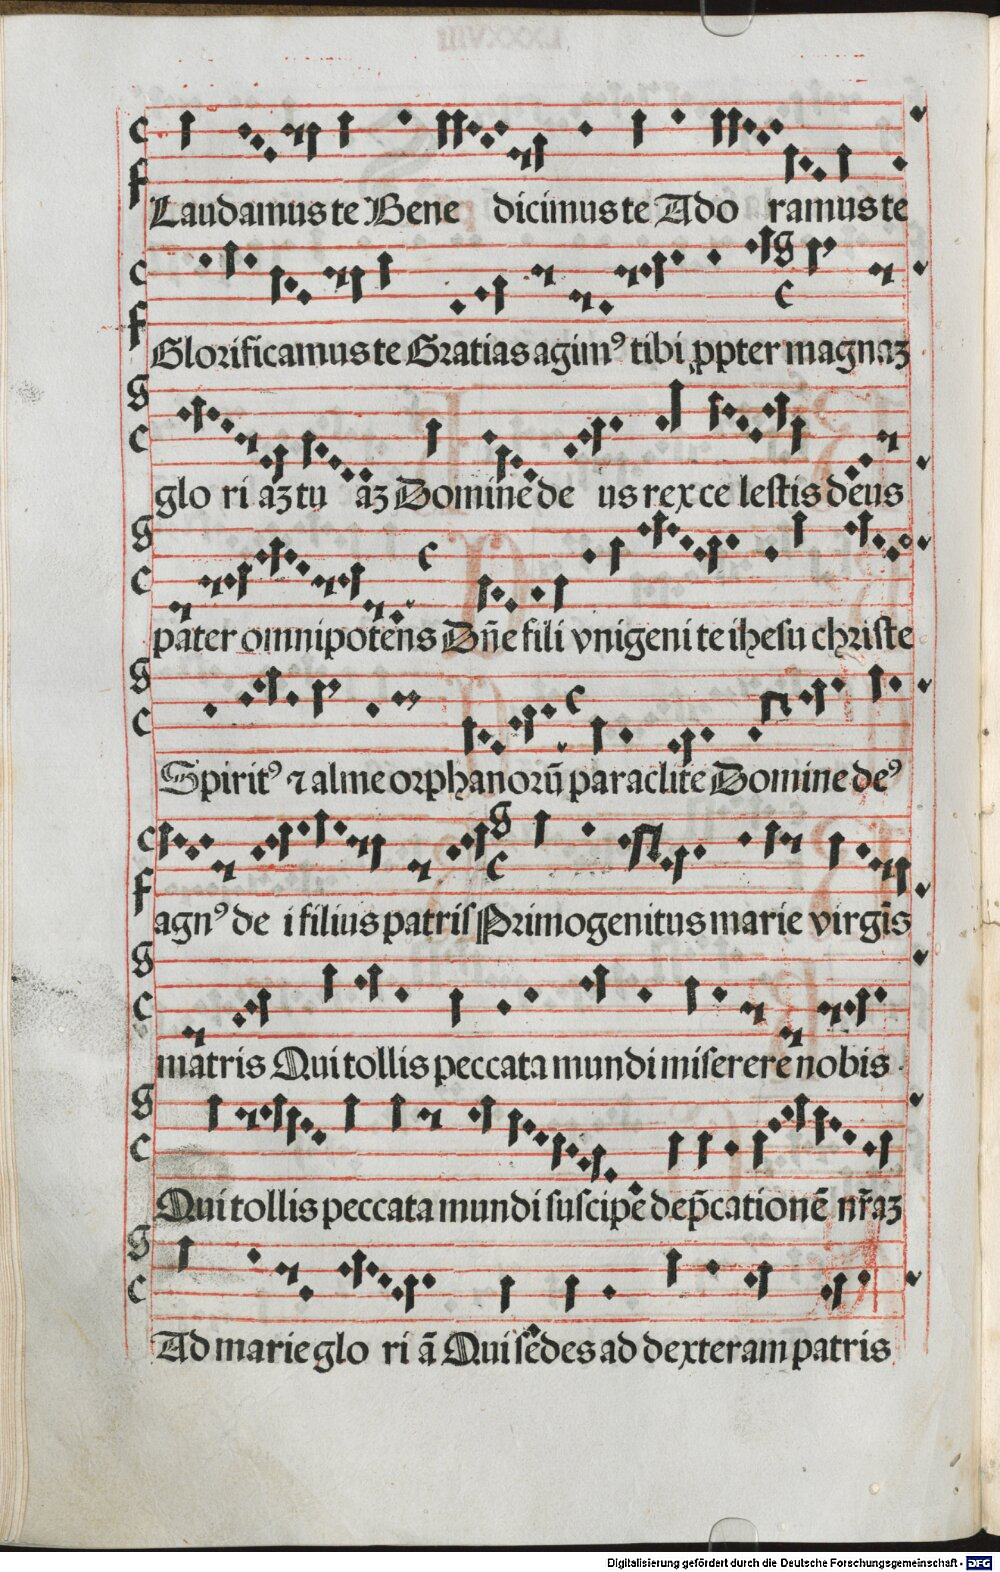 Laudamus te Bene dicimus te Ado ramus te
Glorificamus te Gratias agimꝰ tibi ꝓpter magnaꝫ
glo ri aꝫ tu aꝫ Domine de us rex ce lestis deus
pater omnipotens Dn̄e fili vnigeni te ihesu christe
Spiritꝰ ⁊ alme orphanorū paraclite Domine deꝰ
agnꝰ de i filius patris Primogenitus marie virgīs
matris Qui tollis peccata mundi miserere nobis
Qui tollis peccata mundi suscipe dep̄cationē nr̄aꝫ
Ad marie glo ri ā Qui sedes ad dexteram patris
Digitalisierung gefördert durch die Deutsche Forschungsgemeinschaft - DFG